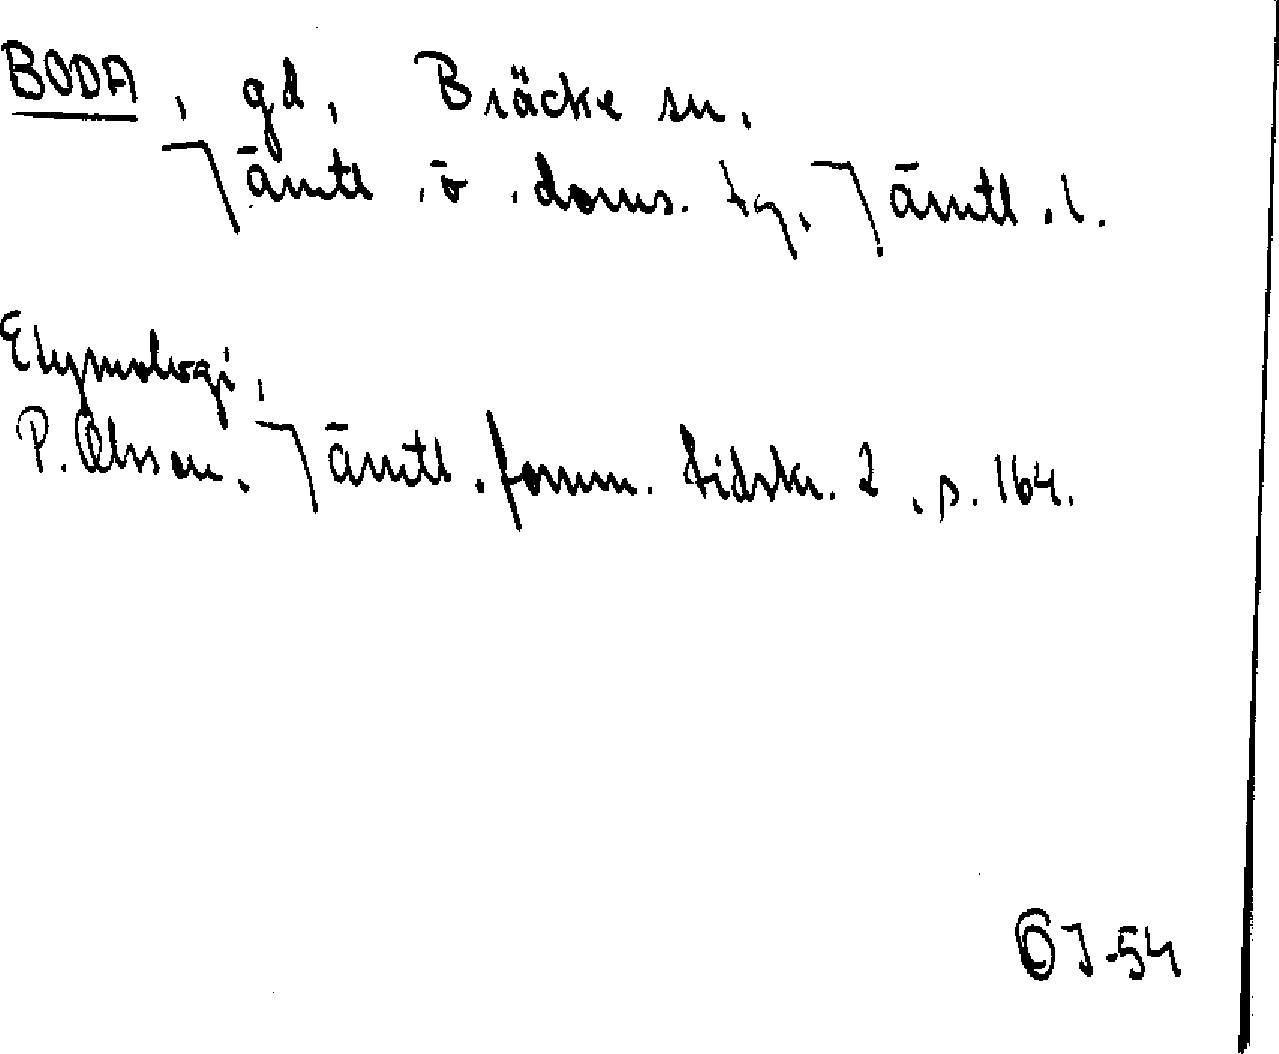 BODA, gd, Bräcke sn,
Jämtl. ö. doms. tg, Jämtl. l.
Etymologi,
P. Olsson, Jämtl. fornm. tidskr. 2, s. 164.
OJ-54